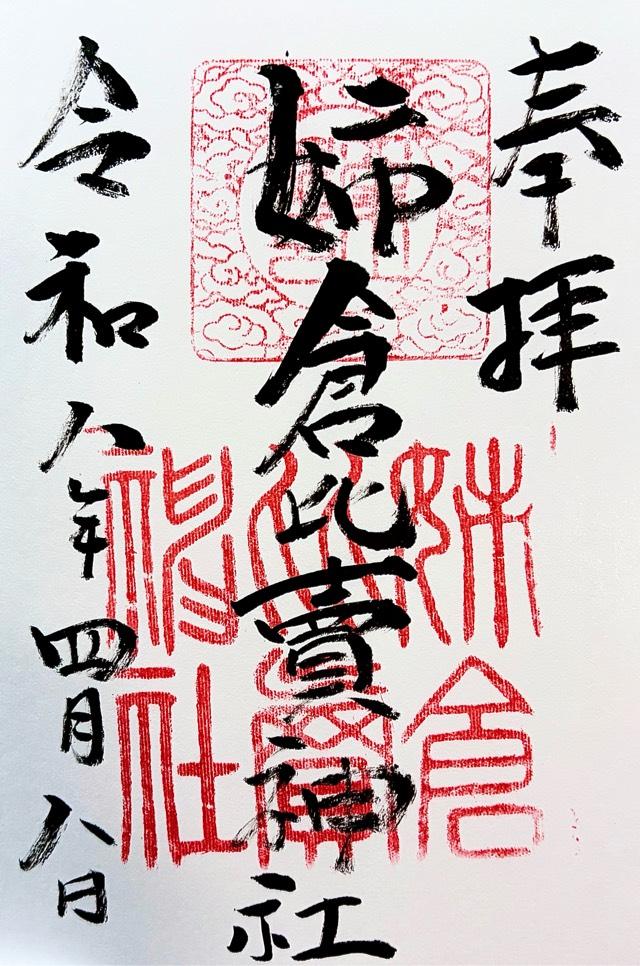 奉拝
姉倉比賣神社
令和八年四月八日
姉倉比賣神社